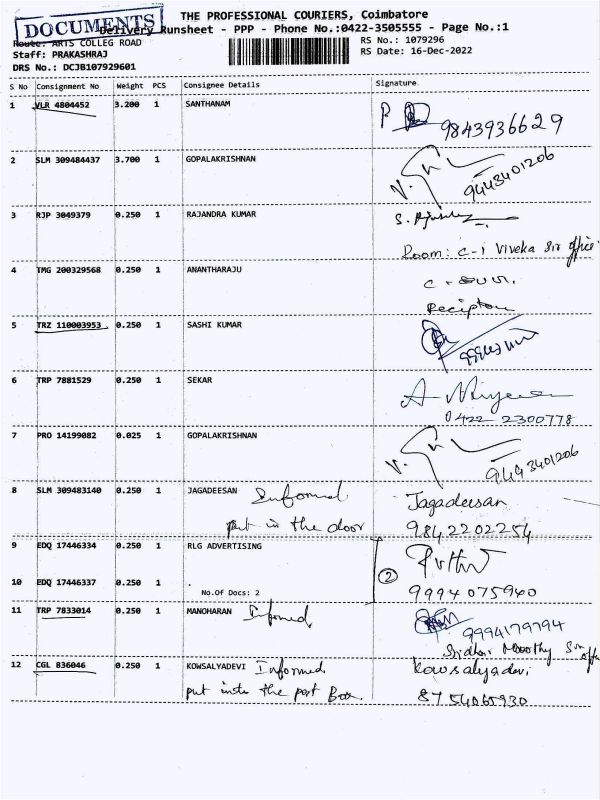 DOCUMENTS
THE PROFESSIONAL COURIERS, Coimbatore
Delivery Runsheet - PPP - Phone No.:0422-3505555 - Page No.:1
Route: ARTS COLLEG ROAD
RS No.: 1079296
Staff: PRAKASHRAJ
RS Date: 16-Dec-2022
DRS No.: DCJB107929601
S No Consignment No Weight PCS Consignee Details Signature
1 VLR 4804452 3.200 1 SANTHANAM
9843936629
2 SLM 309484437 3.700 1 GOPALAKRISHNAN
9443401206
3 RJP 3049379 0.250 1 RAJANDRA KUMAR
Room: C-1 Viveka Sir office
4 TMG 200329568 0.250 1 ANANTHARAJU
5 TRZ 110003953 0.250 1 SASHI KUMAR
6 TRP 7881529 0.250 1 SEKAR
0422 2300778
7 PRO 14199082 0.025 1 GOPALAKRISHNAN
9443401206
8 SLM 309483140 0.250 1 JAGADEESAN Informed Jagadeesan
put in the door 9842202254
9 EDQ 17446334 0.250 1 RLG ADVERTISING
10 EDQ 17446337 0.250 1 . 2
No.Of Docs: 2 9994075940
11 TRP 7833014 0.250 1 MANOHARAN Informed
9994179794
12 CGL 836046 0.250 1 KOWSALYADEVI Informed Kowsalyadevi
put the post Box 8754065930